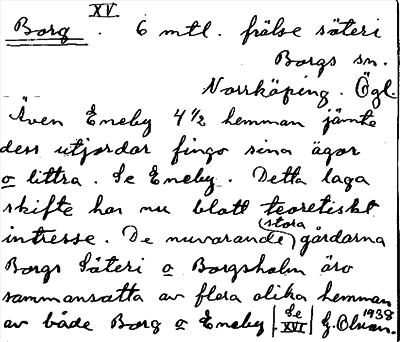 XV
Borg . 6 mtl. frälse säteri
Borgs sn.
Norrköping. Ögl.
Även Eneby 4 1/2 hemman jämte
dess utjordar fingo sina ägor
o littra. Se Eneby. Detta laga
skifte har nu blott teoretiskt
intresse. De nuvarande (stora) gårdarna
Borgs Säteri o Borgsholm äro
sammansatta av flera olika hemman
av både Borg o Eneby | Se XVI | G. Olsson. 1938